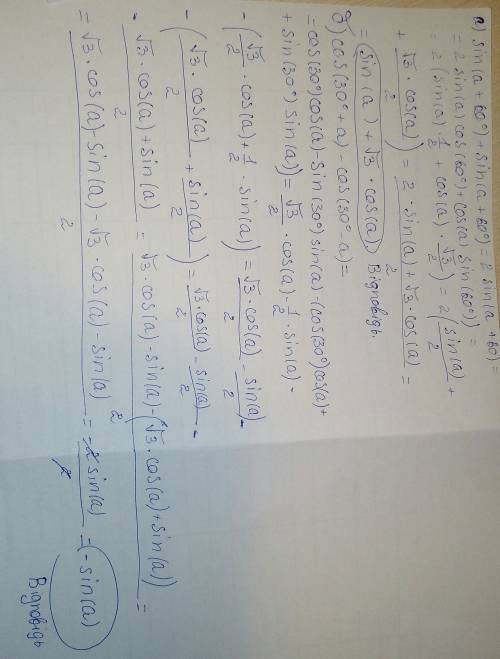 а) sin(a + 60°) + sin(a + 60°) = 2 sin(a + 60) =
= 2 (sin(a) cos(60°) + cos(a) sin(60°)) =
= 2 (sin(a) · 1/2 + cos(a) · √3/2) = 2 (sin(a)/2 +
+ √3 · cos(a)/2) = 2 · sin(a) + √3 · cos(a)/2 =
= sin(a) + √3 · cos(a)) Відповідь.
б) cos(30° + a) - cos(30° a) =
= cos(30°) cos(a) - sin(30°) sin(a) - (cos(30°) cos(a) +
+ sin(30°) sin(a)) = √3/2 · cos(a) - 1/2 · sin(a) -
- (√3/2 · cos(a) + 1/2 · sin(a)) = √3 · cos(a)/2 - sin(a)/2 -
- (√3 · cos(a)/2 + sin(a)/2) = √3 · cos(a)/2 - sin(a)/2 -
- √3 · cos(a) + sin(a)/2 = √3 · cos(a) - sin(a) - (√3 · cos(a) + sin(a))/2 =
= √3 · cos(a) - sin(a) - √3 · cos(a) - sin(a)/2 = -2 sin(a)/2 = (- sin(a)
Відповідь